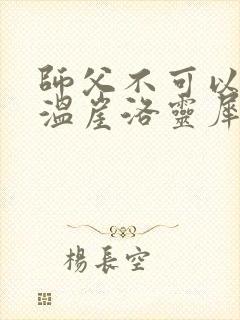 師父不可以
溫崖洛靈犀
楊長空